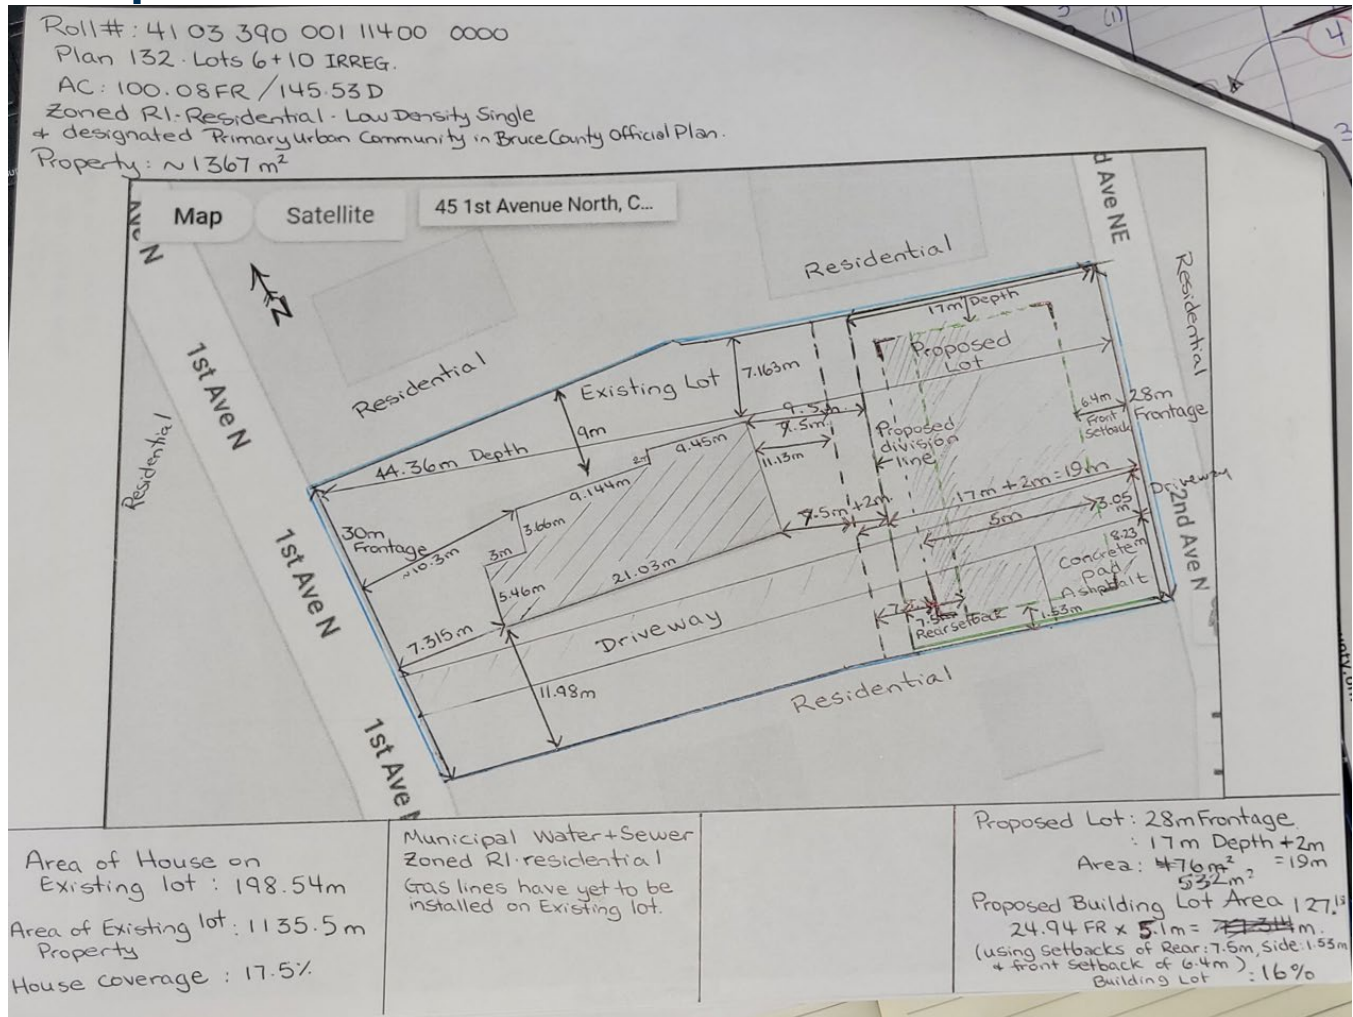 Roll#: 41 03 390 001 11400 0000
Plan 132. Lots 6+10 IRREG.
AC: 100.08FR /145.53D
Zoned R1-Residential - Low Density Single
+ designated Primary Urban Community in Bruce County Official Plan.
Property: ~1367 m²
(1)
4
Map
Satellite
45 1st Avenue North, C...
Ave N
d Ave NE
N
Residential
Residential
Residential
Residential
1st Ave N
1st Ave N
1st Ave N
17m Depth
Proposed
Lot
Existing Lot
7.163m
9m
44.36m Depth
9.5m
9.5m
11.13m
9.45m
2m
9.144m
3.66m
3m
5.46m
21.03m
30m
Frontage
~10.3m
7.315m
11.98m
Driveway
Proposed
division
line
6.4m
Front
setback
28m
Frontage
17m + 2m = 19m
9.5m+2m
5m
3.05
m
Driveway
8.23
m
Concrete
pad
Ashpalt
2nd Ave N
7.5m
Rear setback
1.53m
Residential
Area of House on
Existing lot : 198.54m
Area of Existing lot: 1135.5m
Property
House coverage : 17.5%
Municipal Water+Sewer
Zoned R1-residential
Gas lines have yet to be
installed on Existing lot.
Proposed Lot: 28m Frontage
: 17m Depth +2m
=19m
Area: 476m²
532m²
Proposed Building Lot Area 127.13
24.94 FR x 5.1m = m.
(using setbacks of Rear: 7.5m, Side: 1.53m
+ front setback of 6.4m)
Building Lot : 16%